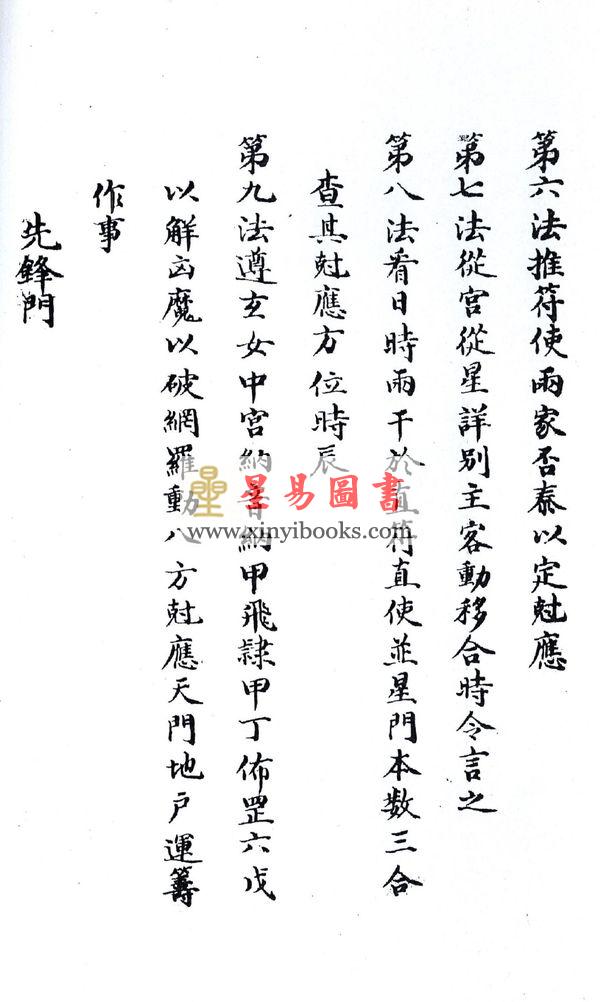 第六法推符使兩家否泰以定尅應
第七法從宮從星詳別主客動移合時令言之
第八法看日時兩干於直符直使並星門本數三合
查其尅應方位時辰
第九法遵玄女中宮納音納甲飛隷甲丁佈罡六戊
以解凶魔以破網羅動八方尅應天門地户運籌
作事
先鋒門
星易圖書
www.xinyibooks.com